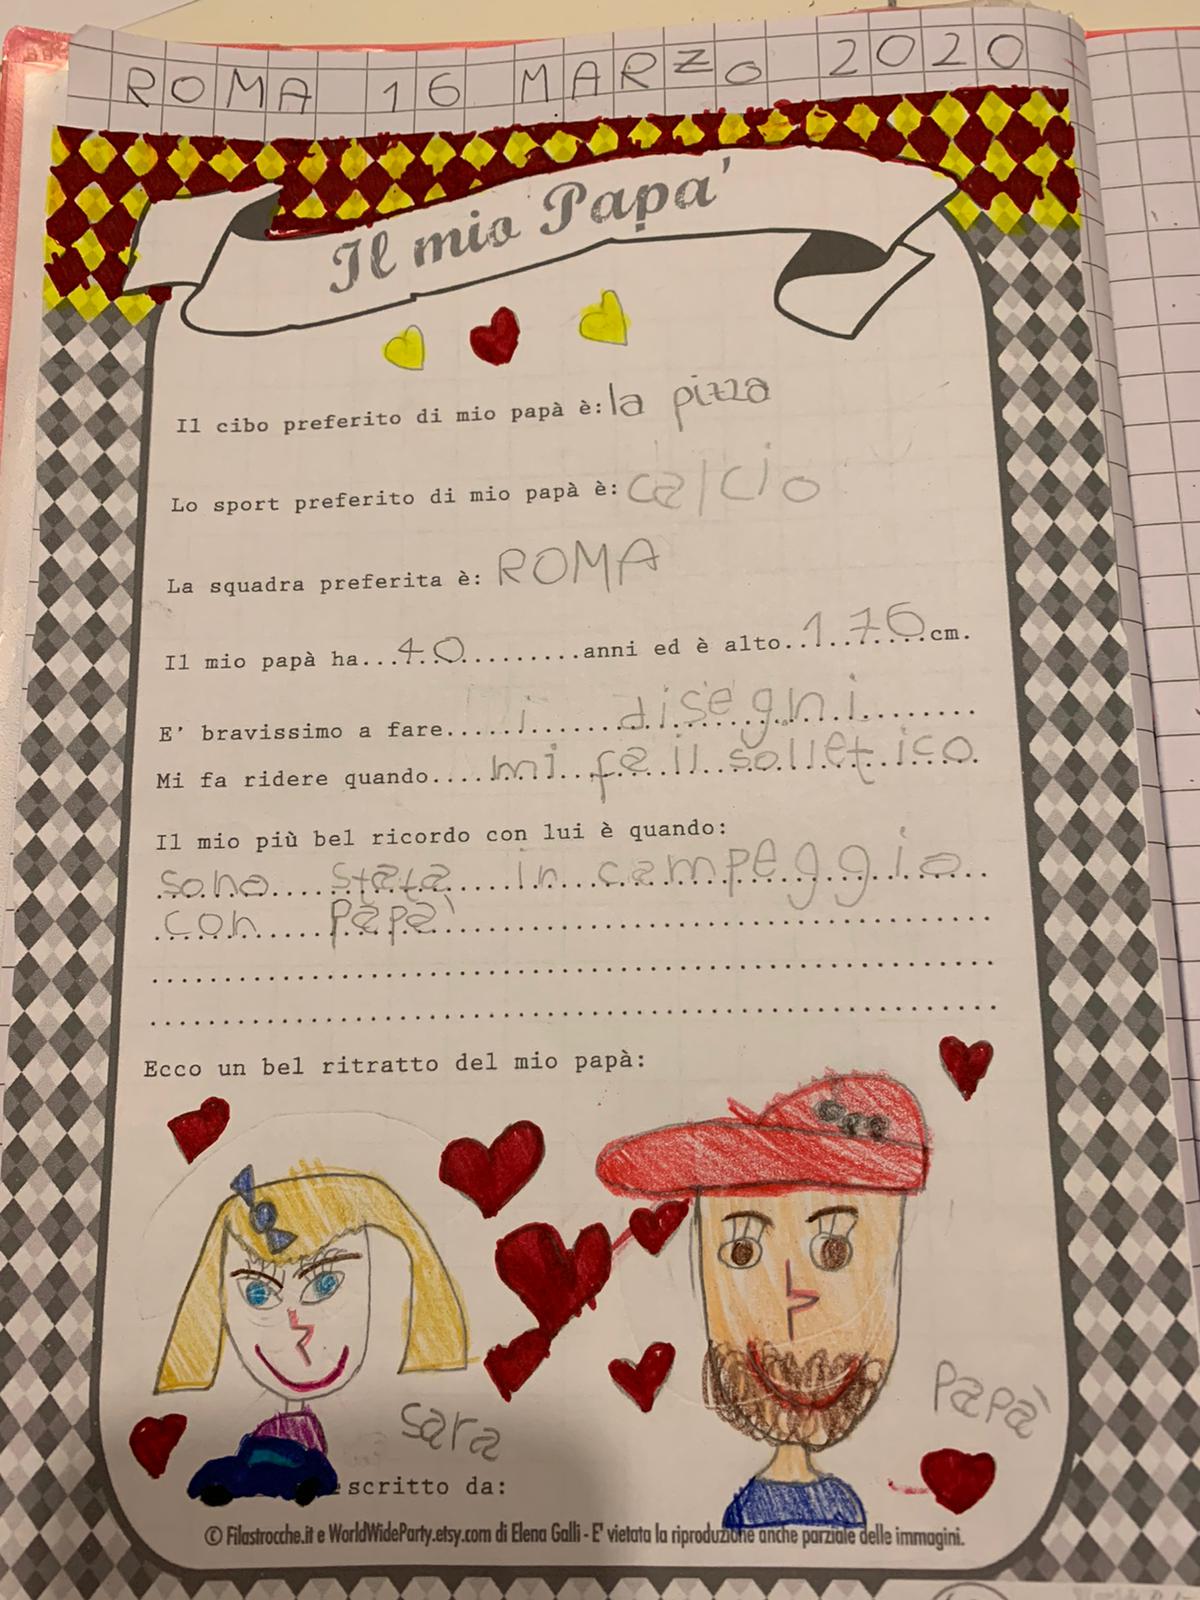 ROMA 16 MARZO 2020
Il mio Papa'
Il cibo preferito di mio papà è: la pizza
Lo sport preferito di mio papà è: calcio
La squadra preferita è: ROMA
Il mio papà ha...40.........anni ed è alto..1.76.......cm.
E' bravissimo a fare.....i......disegni.......
Mi fa ridere quando....mi fa il solletico.
Il mio più bel ricordo con lui è quando:
sono stata in campeggio
con papà
Ecco un bel ritratto del mio papà:
papà
sara
e scritto da:
© Filastrocche.it e WorldWideParty.etsy.com di Elena Galli - E' vietata la riproduzione anche parziale delle immagini.